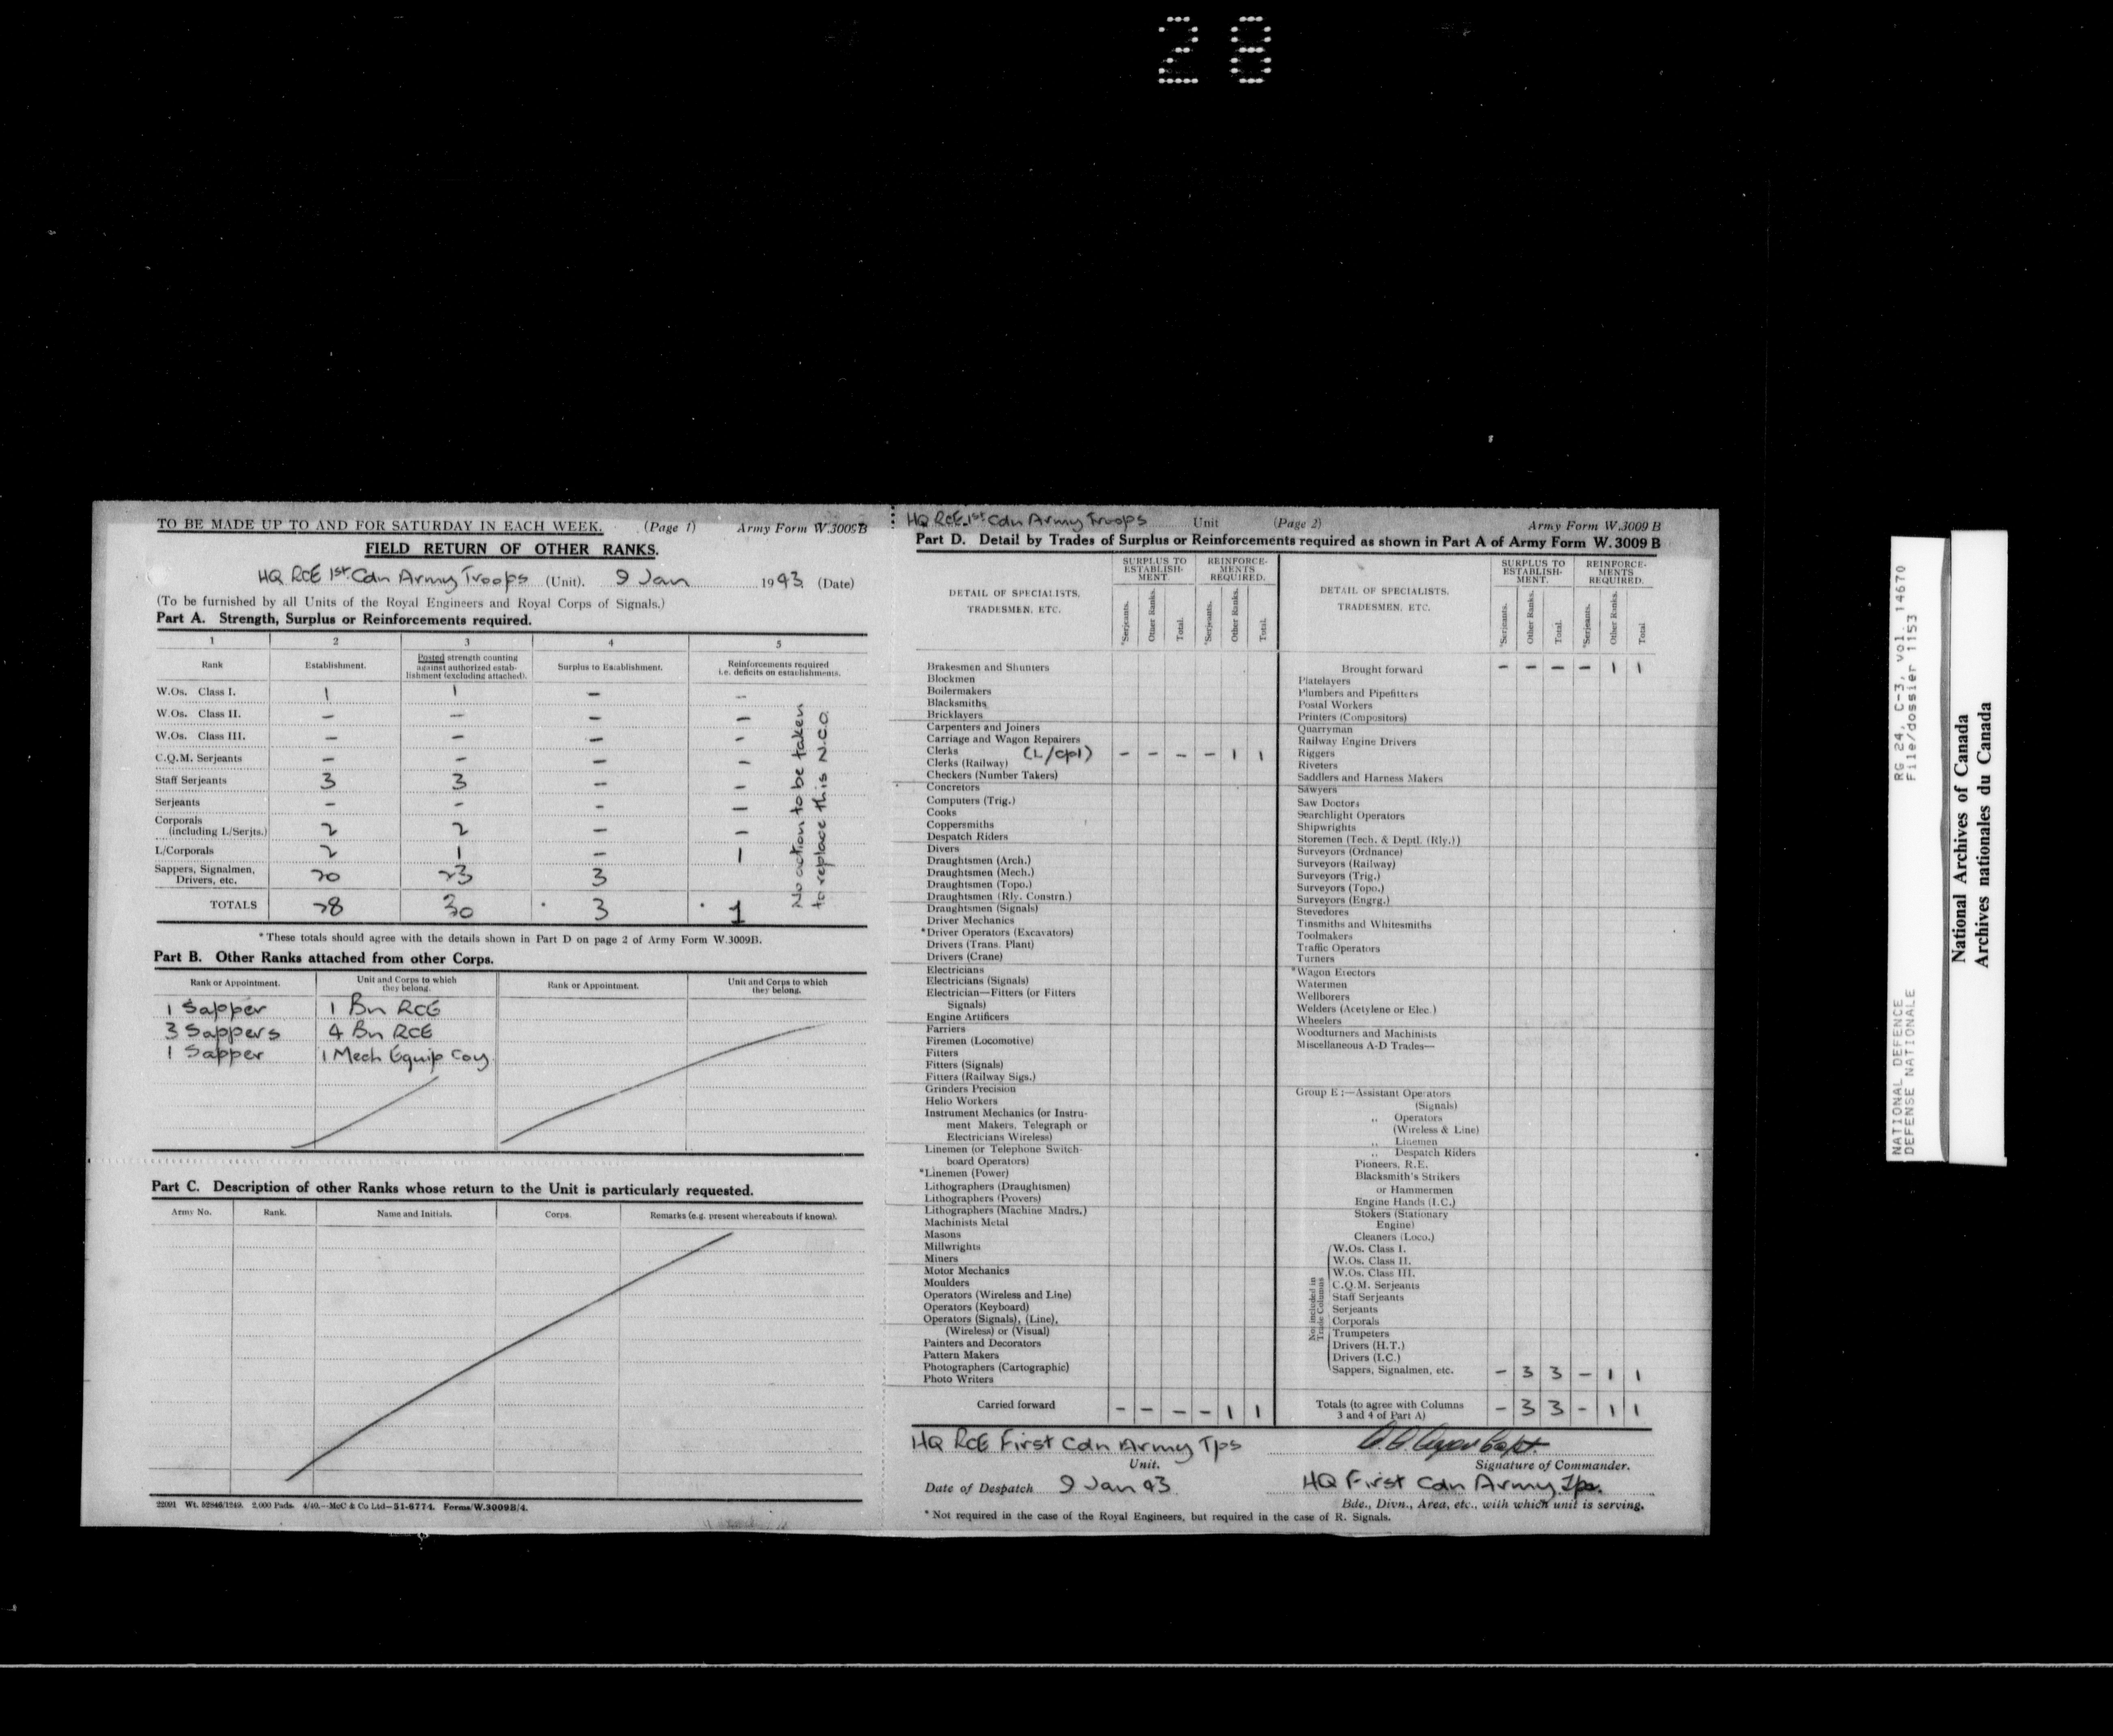 28
TO BE MADE UP TO AND FOR SATURDAY IN EACH WEEK. (Page 1) Army Form W.3009B
FIELD RETURN OF OTHER RANKS.
HQ RCE 1st Cdn Army Troops (Unit). 9 Jan 1943 (Date)
(To be furnished by all Units of the Royal Engineers and Royal Corps of Signals.)
Part A. Strength, Surplus or Reinforcements required.
1 2 3 4 5
Rank Establishment. Posted strength counting against authorized establishment (excluding attached). Surplus to Establishment. Reinforcements required i.e. deficits on establishments.
W.Os. Class I. 1 1 – –
W.Os. Class II. – – – –
W.Os. Class III. – – – –
C.Q.M. Serjeants – – – –
Staff Serjeants 3 3 – –
Serjeants – – – –
Corporals (including L/Serjts.) 2 2 – –
L/Corporals 2 1 – 1
Sappers, Signalmen, Drivers, etc. 20 23 3
TOTALS 28 30 * 3 * 1
No action to be taken
to replace this N.C.O.
* These totals should agree with the details shown in Part D on page 2 of Army Form W.3009B.
Part B. Other Ranks attached from other Corps.
Rank or Appointment. Unit and Corps to which they belong. Rank or Appointment. Unit and Corps to which they belong.
1 Sapper 1 Bn RCE
3 Sappers 4 Bn RCE
1 Sapper 1 Mech Equip Coy
Part C. Description of other Ranks whose return to the Unit is particularly requested.
Army No. Rank. Name and Initials. Corps. Remarks (e.g. present whereabouts if known).
22091 Wt. 52846/1249. 2,000 Pads. 4/40.—McC & Co Ltd—51-6774. Forms/W.3009B/4.
HQ RCE 1st Cdn Army Troops Unit (Page 2) Army Form W.3009 B
Part D. Detail by Trades of Surplus or Reinforcements required as shown in Part A of Army Form W. 3009 B
DETAIL OF SPECIALISTS, TRADESMEN, ETC.
SURPLUS TO ESTABLISH-MENT.
REINFORCE-MENTS REQUIRED.
*Serjeants. Other Ranks. Total. *Serjeants. Other Ranks. Total.
Brakesmen and Shunters
Blockmen
Boilermakers
Blacksmiths
Bricklayers
Carpenters and Joiners
Carriage and Wagon Repairers
Clerks (L/Cpl) – – – – 1 1
Clerks (Railway)
Checkers (Number Takers)
Concretors
Computers (Trig.)
Cooks
Coppersmiths
Despatch Riders
Divers
Draughtsmen (Arch.)
Draughtsmen (Mech.)
Draughtsmen (Topo.)
Draughtsmen (Rly. Constrn.)
Draughtsmen (Signals)
Driver Mechanics
*Driver Operators (Excavators)
Drivers (Trans. Plant)
Drivers (Crane)
Electricians
Electricians (Signals)
Electrician—Fitters (or Fitters
Signals)
Engine Artificers
Farriers
Firemen (Locomotive)
Fitters
Fitters (Signals)
Fitters (Railway Sigs.)
Grinders Precision
Helio Workers
Instrument Mechanics (or Instru-
ment Makers, Telegraph or
Electricians Wireless)
Linemen (or Telephone Switch-
board Operators)
*Linemen (Power)
Lithographers (Draughtsmen)
Lithographers (Provers)
Lithographers (Machine Mndrs.)
Machinists Metal
Masons
Millwrights
Miners
Motor Mechanics
Moulders
Operators (Wireless and Line)
Operators (Keyboard)
Operators (Signals), (Line),
(Wireless) or (Visual)
Painters and Decorators
Pattern Makers
Photographers (Cartographic)
Photo Writers
Carried forward – – – – 1 1
DETAIL OF SPECIALISTS, TRADESMEN, ETC.
SURPLUS TO ESTABLISH-MENT.
REINFORCE-MENTS REQUIRED.
*Serjeants. Other Ranks. Total. *Serjeants. Other Ranks. Total
Brought forward – – – – 1 1
Platelayers
Plumbers and Pipefitters
Postal Workers
Printers (Compositors)
Quarryman
Railway Engine Drivers
Riggers
Riveters
Saddlers and Harness Makers
Sawyers
Saw Doctors
Searchlight Operators
Shipwrights
Storemen (Tech. & Deptl. (Rly.))
Surveyors (Ordnance)
Surveyors (Railway)
Surveyors (Trig.)
Surveyors (Topo.)
Surveyors (Engrg.)
Stevedores
Tinsmiths and Whitesmiths
Toolmakers
Traffic Operators
Turners
*Wagon Erectors
Watermen
Wellborers
Welders (Acetylene or Elec.)
Wheelers
Woodturners and Machinists
Miscellaneous A-D Trades—
Group E:—Assistant Operators
(Signals)
,, Operators
(Wireless & Line)
,, Linemen
,, Despatch Riders
Pioneers, R.E.
Blacksmith's Strikers
or Hammermen
Engine Hands (I.C.)
Stokers (Stationary
Engine)
Cleaners (Loco.)
Not included in Trade Columns
W.Os. Class I.
W.Os. Class II.
W.Os. Class III.
C.Q.M. Serjeants
Staff Serjeants
Serjeants
Corporals
Trumpeters
Drivers (H.T.)
Drivers (I.C.)
Sappers, Signalmen, etc. – 3 3 – 1 1
Totals (to agree with Columns 3 and 4 of Part A) – 3 3 – 1 1
HQ RCE First Cdn Army Tps
Unit.
Capt.
Signature of Commander.
Date of Despatch 9 Jan 43
HQ First Cdn Army Tps.
Bde., Divn., Area, etc., with which unit is serving.
* Not required in the case of the Royal Engineers, but required in the case of R. Signals.
NATIONAL DEFENCE RG 24, C-3, vol. 14670
DEFENSE NATIONALE File/dossier 1153
National Archives of Canada
Archives nationales du Canada